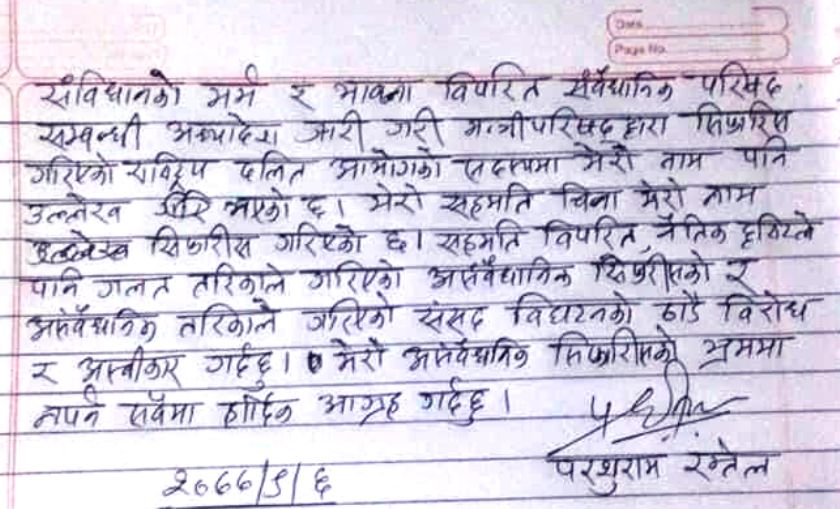 Date
Page No.
संविधानको मर्म र भावना विपरित संवैधानिक परिषद
सम्बन्धी अध्यादेश जारी गरी मन्त्रीपरिषद द्वारा सिफारिस
गरिएको राष्ट्रिय दलित आयोगको सदस्यमा मेरो नाम पनि
उल्लेख भएको छ। मेरो सहमति बिना मेरो नाम
सिफारीस गरिएको छ। सहमति विपरित, नैतिक दृष्टिले
पनि गलत तरिकाले गरिएको असंवैधानिक सिफारीसको र
असंवैधानिक तरिकाले गरिएको संसद विघटनको ठाडै विरोध
र अस्वीकार गर्दछु। मेरो असंवैधानिक सिफारीसको भ्रममा
नपर्न सबैमा हार्दिक आग्रह गर्दछु।
परशुराम रम्तेल
२०७७/९/६